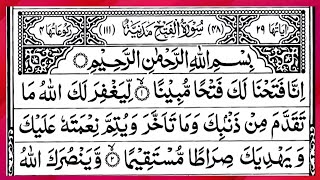 اٰيَاتُهَا ٢٩ (٤٨) سُوْرَةُ الْفَتْحِ مَدَنِيَّةٌ (١١١) رُكُوْعَاتُهَا ٤
بِسْمِ اللهِ الرَّحْمٰنِ الرَّحِيْمِ
اِنَّا فَتَحْنَا لَكَ فَتْحًا مُّبِيْنًا ۙ﴿١﴾ لِّيَغْفِرَ لَكَ اللهُ مَا
تَقَدَّمَ مِنْ ذَنْۢبِكَ وَمَا تَاَخَّرَ وَيُتِمَّ نِعْمَتَهٗ عَلَيْكَ
وَيَهْدِيَكَ صِرَاطًا مُّسْتَقِيْمًا ۙ﴿٢﴾ وَّيَنْصُرَكَ اللهُ